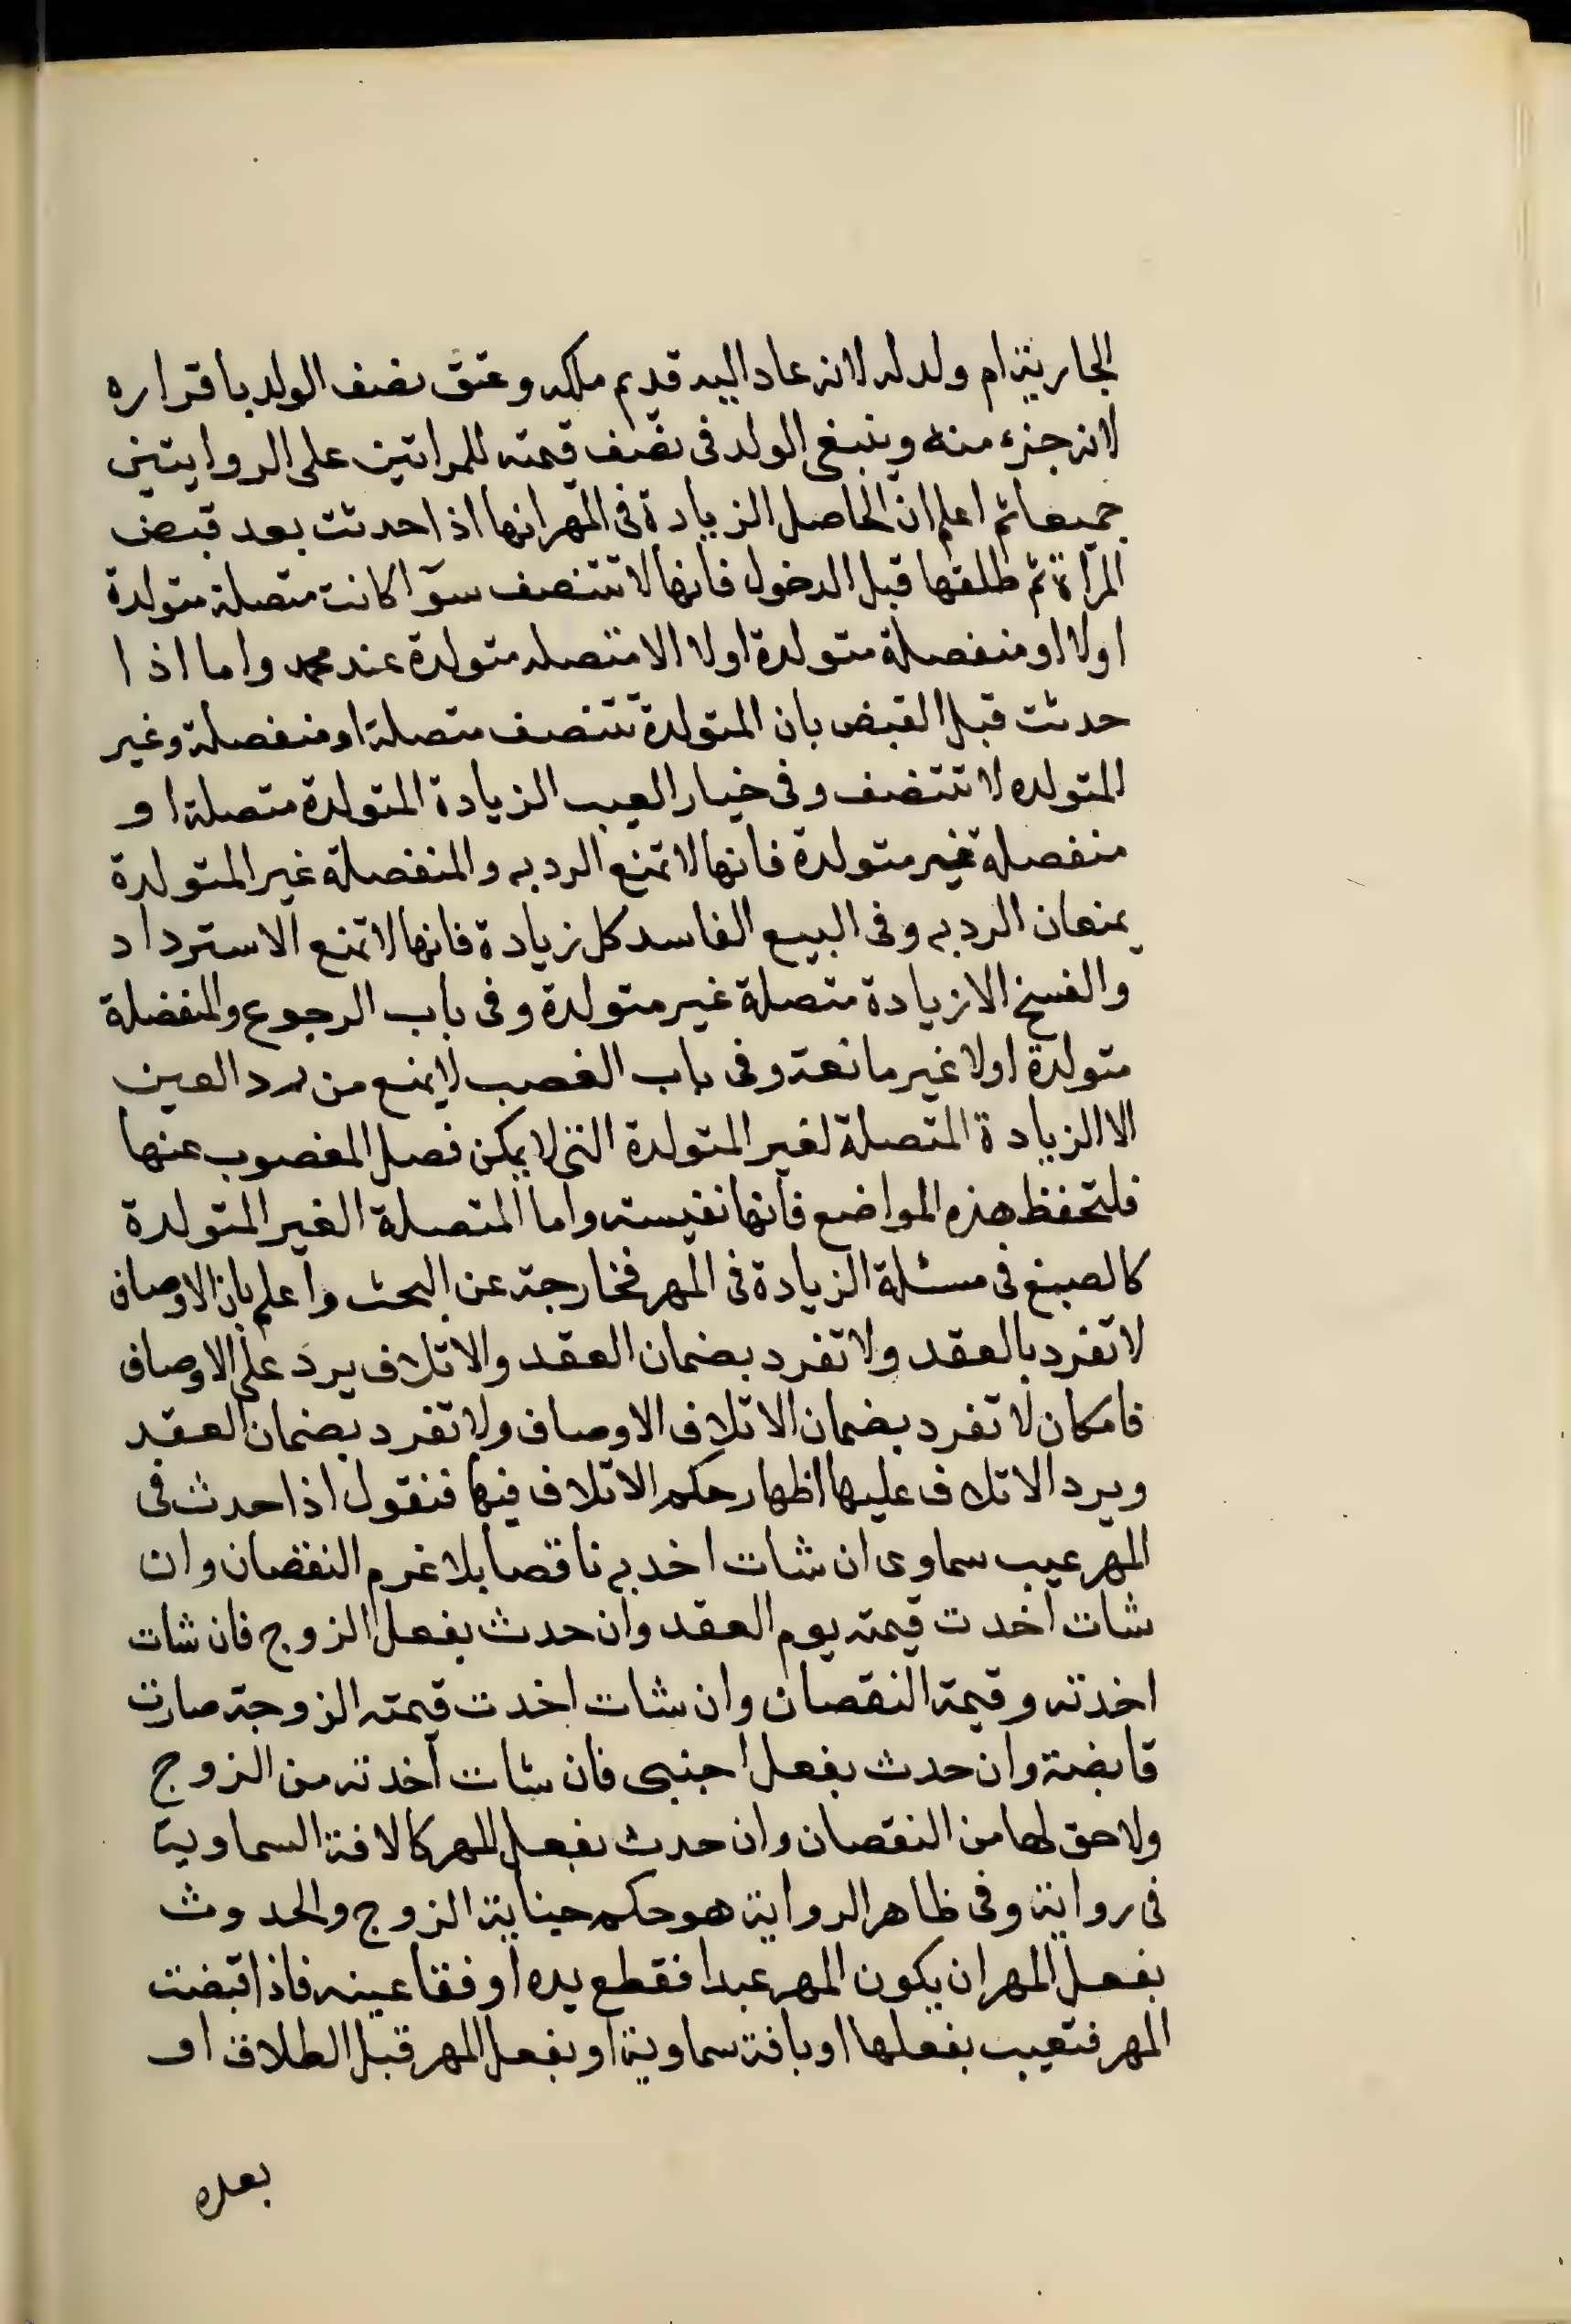 الجارية ام ولد له لانه عاد اليه قديم ملكه وعتق نصف الولد باقراره
لانه جزء منه وينبغي الولد فى نصف قيمته للمراتين على الروايتين
جميعا ثم اعلم ان الحاصل الزيادة فى المهر انها اذا حدثت بعد قبض
المرأة ثم طلقها قبل الدخول فانها لا تتنصف سوآ كانت متصلة متولدة
اولا او منفصلة متولدة اولا الا متصله متولدة عند محمد واما اذا
حدثت قبل القبض بان المتولدة تتنصف متصلة او منفصلة وغير
المتولده لا تتنصف وفى خيار العيب الزيادة المتولدة متصلة او
منفصلة غير متولدة فانها لا تمنع الرد به والمنفصلة غير المتولدة
يمنعان الرد به وفى البيع الفاسد كل زيادة فانها لا تمنع الاسترداد
والفسخ الا زيادة متصلة غير متولدة وفى باب الرجوع والمنفصلة
متولدة اولا غير مانعة وفى باب الغصب لا يمنع من رد العين
الا الزيادة المتصلة لغير المتولدة التى لا يمكن فصل المغصوب عنها
فلتحفظ هذه المواضع فانها نفيسة واما المتصلة الغير المتولدة
كالصبغ فى مسئلة الزيادة فى المهر فخارجة عن البحث واعلم بان الاوصاف
لا تفرد بالعقد ولا تفرد بضمان العقد والاتلاف يرد على الاوصاف
فامكان لا تفرد بضمان الاتلاف الاوصاف ولا تفرد بضمان العقد
ويرد الاتلاف عليها اظهار حكم الاتلاف فيها فنقول اذا حدث فى
المهر عيب سماوى ان شات اخدبه ناقصا بلا غرم النقصان وان
شات اخدت قيمته يوم العقد وان حدث بفعل الزوج فان شات
اخدته وقيمة النقصان وان شات اخدت قيمته الزوجة صارت
قابضة وان حدث بفعل اجنبى فان شات اخدته من الزوج
ولا حق لها من النقصان وان حدث بفعل المهر كالافة السماوية
فى رواية وفى ظاهر الرواية هو حكم جناية الزوج والحدوث
بفعل المهر ان يكون المهر عبدا فقطع يده او فقا عينه فاذا قبضت
المهر فتعيب بفعلها او بافة سماوية او بفعل المهر قبل الطلاق او
بعده